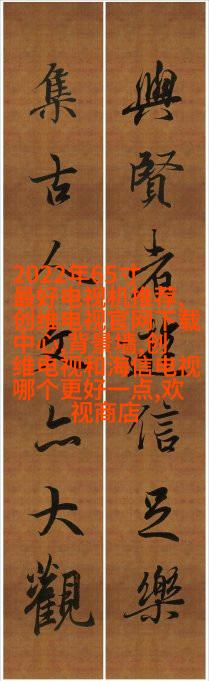 與賢者遊信足樂
集古人文亦大觀
2022年65寸
最好电视机推荐,
创维电视官网下载
中心,背景墙,创
维电视和海信电视
哪个更好一点,欢
视商店